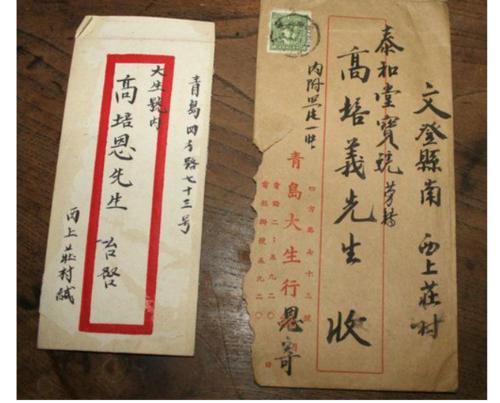 青島四方路七十三号
大生號內
高培恩先生 台啓
西上莊村緘
文登縣南 西上莊村
泰和堂寶號 勞轉
高培義先生 收
內附照片一張
四方路七十三號
青島大生行
恩寄